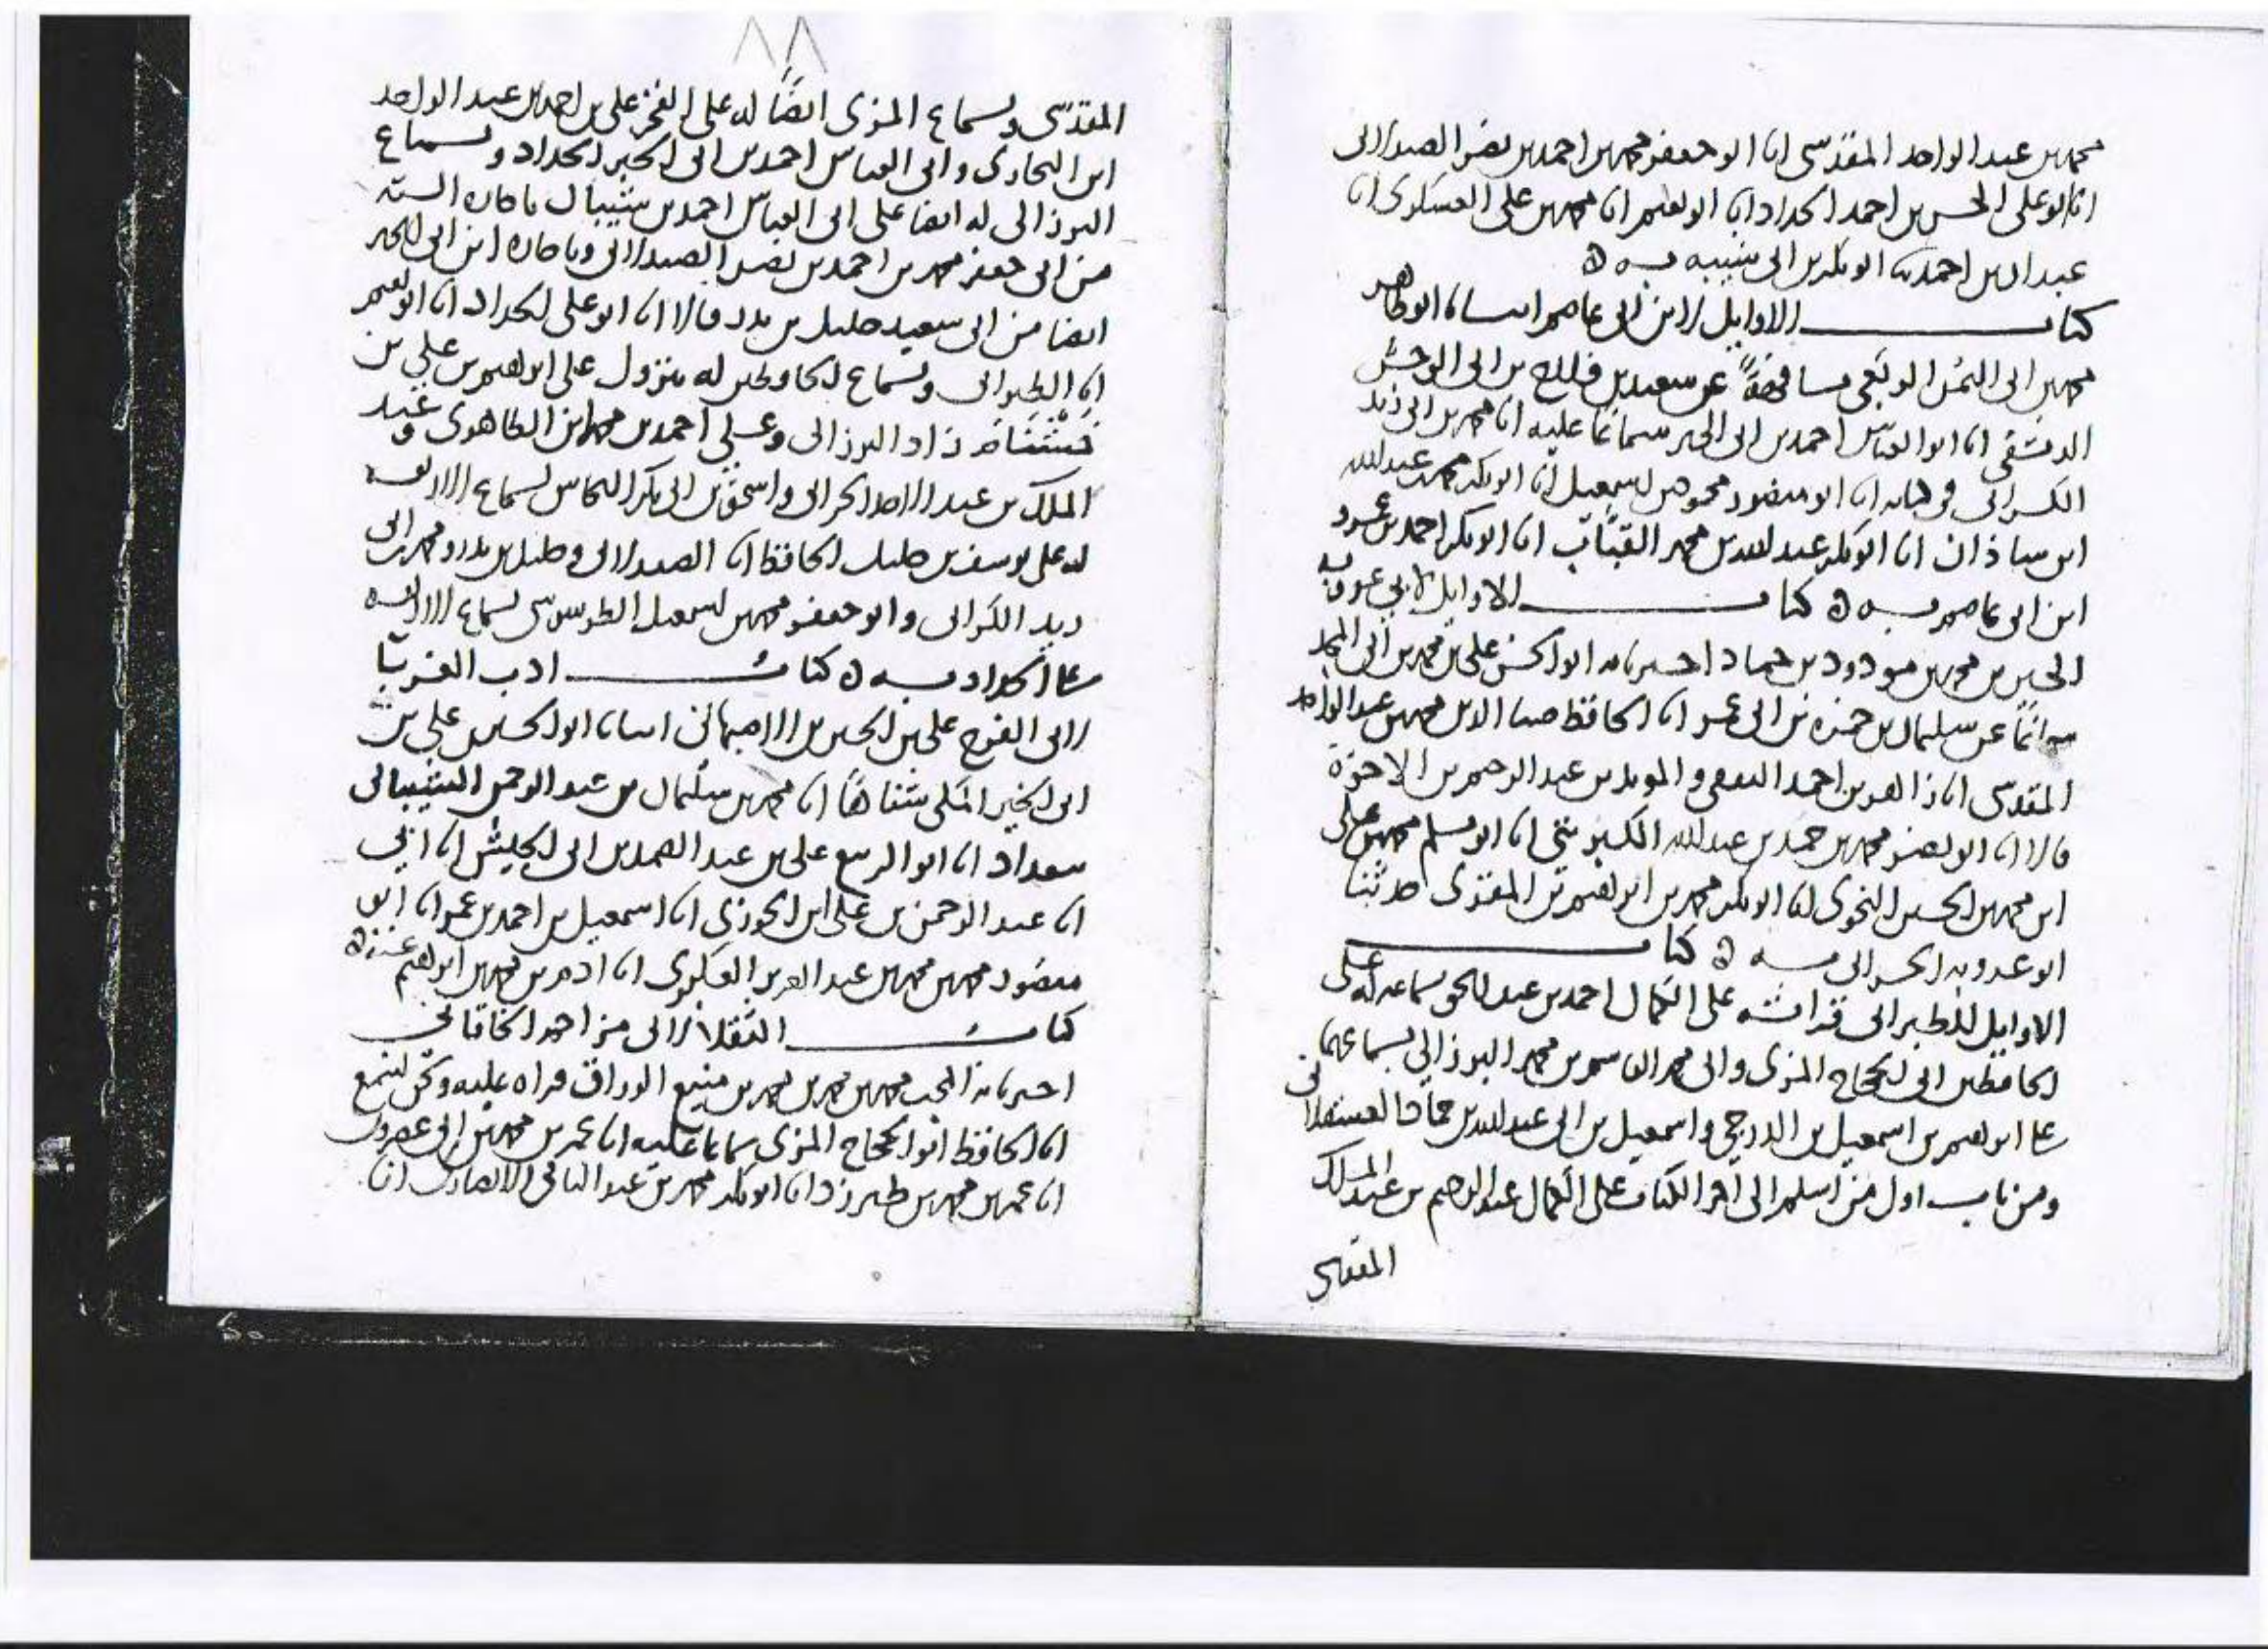 محمد بن عبد الواحد المقدسي انا ابو جعفر محمد بن احمد بن نصر الصيدلاني
انا ابو علي الحسن بن احمد الحداد انا ابو نعيم انا محمد بن علي العسكري انا
عبد الله بن احمد ابو بكر بن ابي شيبة به ه
كتاب الاوايل لابن ابي عاصم انبانا ابو طاهر
محمد بن ابي اليمن الربعي مشافهة عن سعيد بن فلاح بن ابي الوحش
الدمشقي انا ابو العباس احمد بن ابي الخير سماعا عليه انا محمد بن ابي زيد
الكراني في كتابه انا ابو منصور محمود بن اسمعيل انا ابو بكر محمد بن عبد الله
ابن شاذان انا ابو بكر عبد الله بن محمد القباب انا ابو بكر احمد بن عمرو
ابن ابي عاصم به ه كتاب الاوايل لابي عروبة
الحسين بن محمد بن مودود بن حماد اخبرنا به ابو الحسن علي بن محمد بن ابي المجد
عن سليمان بن حمزة بن ابي عمر انا الحافظ ضيا الدين محمد بن عبد الواحد
المقدسي انا زاهر بن احمد الثقفي والمويد بن عبد الرحيم بن الاخوة
قالا انا ابو نصر محمد بن حمد بن عبد الله الكبريتي انا ابو مسلم محمد بن علي
ابن محمد بن الحسين النحوي انا ابو بكر محمد بن ابراهيم بن المقري حدثنا
ابو عروبة الحراني به ه كتاب
الاوايل للطبراني قراته على الكمال احمد بن عبد الحق بسماعه له على
الحافظين ابي الحجاج المزي وابي محمد القاسم بن محمد البرزالي بسماعهما
على ابراهيم بن اسمعيل بن الدرجي واسمعيل بن ابي عبد الله بن حماد العسقلاني
ومن باب اول من اسلم الى اخر الكتاب على الكمال عبد الرحيم بن عبد الملك
المقدسي
٨٨
المقدسي وبسماع المزي ايضا له على الفخر علي بن احمد بن عبد الواحد
ابن البخاري وابي العباس احمد بن ابي الخير الحداد وبسماع
البرزالي له ايضا على ابي العباس احمد بن شيبان باجازة الستة
من ابي جعفر محمد بن احمد بن نصر الصيدلاني وباجازة ابن ابي الخير
ايضا من ابي سعيد خليل بن بدر قالا انا ابو علي الحداد انا ابو نعيم
انا الطبراني وبسماع الحافظين له بنزول على ابراهيم بن علي بن
خشنام زاد البرزالي وعلى احمد بن محمد ابن الظاهري وعبد
الملك بن عبد الاحد الحراني واسحق بن ابي بكر النحاس بسماع الاربعة
له على يوسف بن خليل الحافظ انا الصيدلاني وخليل بن بدر ومحمد بن ابي
زيد الكراني وابو جعفر محمد بن اسمعيل الطرسوسي بسماع الاربعة
على الحداد به ه كتاب ادب الغربا
لابي الفرج علي بن الحسين الاصبهاني انبانا ابو الحسن علي بن
ابي الخير المكي شفاها انا محمد بن سليمان بن عبد الرحمن الشيباني
ببغداد انا ابو الربيع علي بن عبد الصمد بن ابي الجيش انا ابي
انا عبد الرحمن بن علي ابن الجوزي انا اسمعيل بن احمد بن عمر انا ابو
منصور محمد بن محمد بن عبد العزيز العكبري انا ادم بن محمد بن ابراهيم عنه ه
كتاب الثقلا لابي مزاحم الخاقاني
اخبرنا به المحب محمد بن محمد بن محمد بن منيع الوراق قراه عليه ونحن نسمع
انا الحافظ ابو الحجاج المزي سماعا عليه انا عمر بن محمد بن ابي عصرون
انا عمر بن محمد بن طبرزد انا ابو بكر محمد بن عبد الباقي الانصاري انا